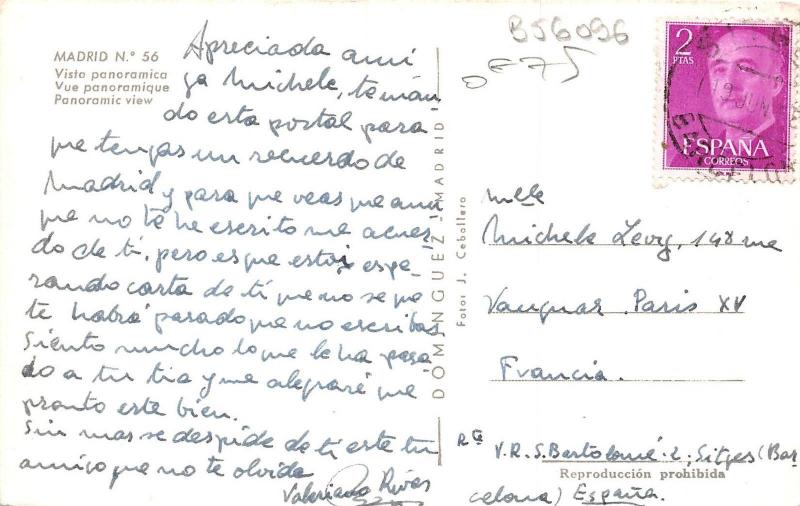 MADRID N.º 56
Vista panoramica
Vue panoramique
Panoramic view
Apreciada ami
ga Michele, te man
do esta postal para
que tengas un recuerdo de
Madrid y para que veas que aun
que no te he escrito me acuer
do de ti, pero es que estoy espe-
rando carta de ti que no se que
te habrá pasado que no escribas
Siento mucho lo que le ha pasa
do a tu tia y me alegraré que
pronto este bien.
Sin mas se despide de ti este tu
amigo que no te olvida
Valeriano Rivas
DOMINGUEZ - MADRID
Foto: J. Caballero
B56096
2
PTAS
ESPAÑA
CORREOS
19 JUN
Mlle
Michele Levy, 148 rue
Paris XV
Francia.
Rte V.R. S. Bartolomé-2; Sitges (Bar
Reproducción prohibida
celona) España.